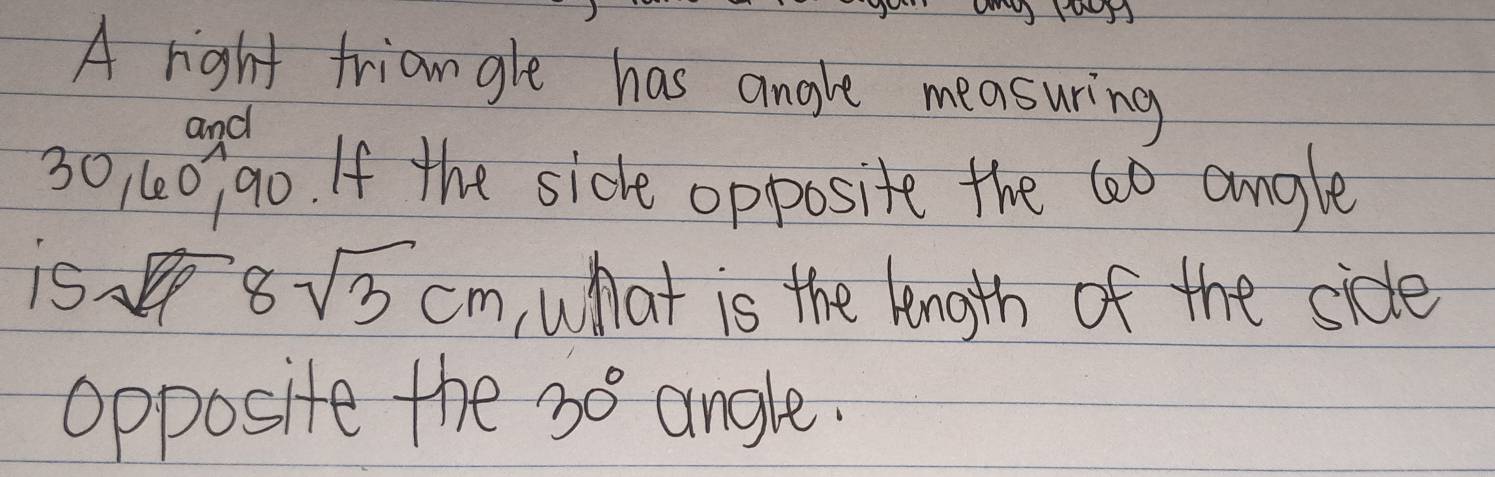 A right triangle has angle measuring
and
30, 60, 90. If the side opposite the 60 angle
is 8√3 cm, what is the length of the side
opposite the 30° angle.